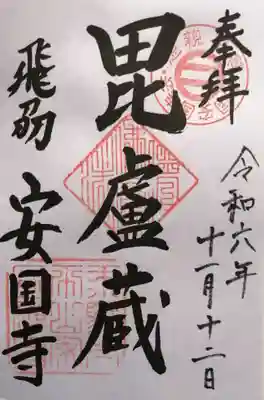 奉拝
令和六年
十一月十二日
毘盧蔵
飛刕
安国寺